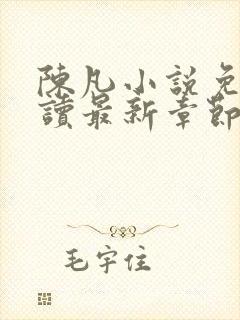 陳凡小說免
讀最新章節
毛宇住